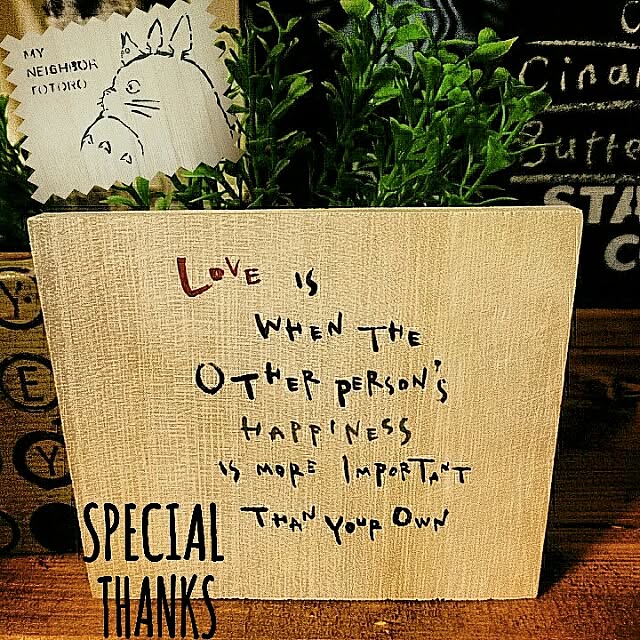 MY
NEIGHBOR
TOTORO
Cina
Butte
STA
C
LOVE IS
WHEN THE
OTHER PERSON'S
HAPPINESS
IS MORE IMPORTANT
THAN YOUR OWN
Y
E
Y
SPECIAL
THANKS